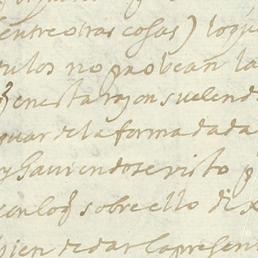 entre otras cosas) loqu
tulos no probean la
q̃ en esta razon suelend
guar de la forma dada
y haviendose visto p
con loq̃ sobre ello dix
bien de dar la present